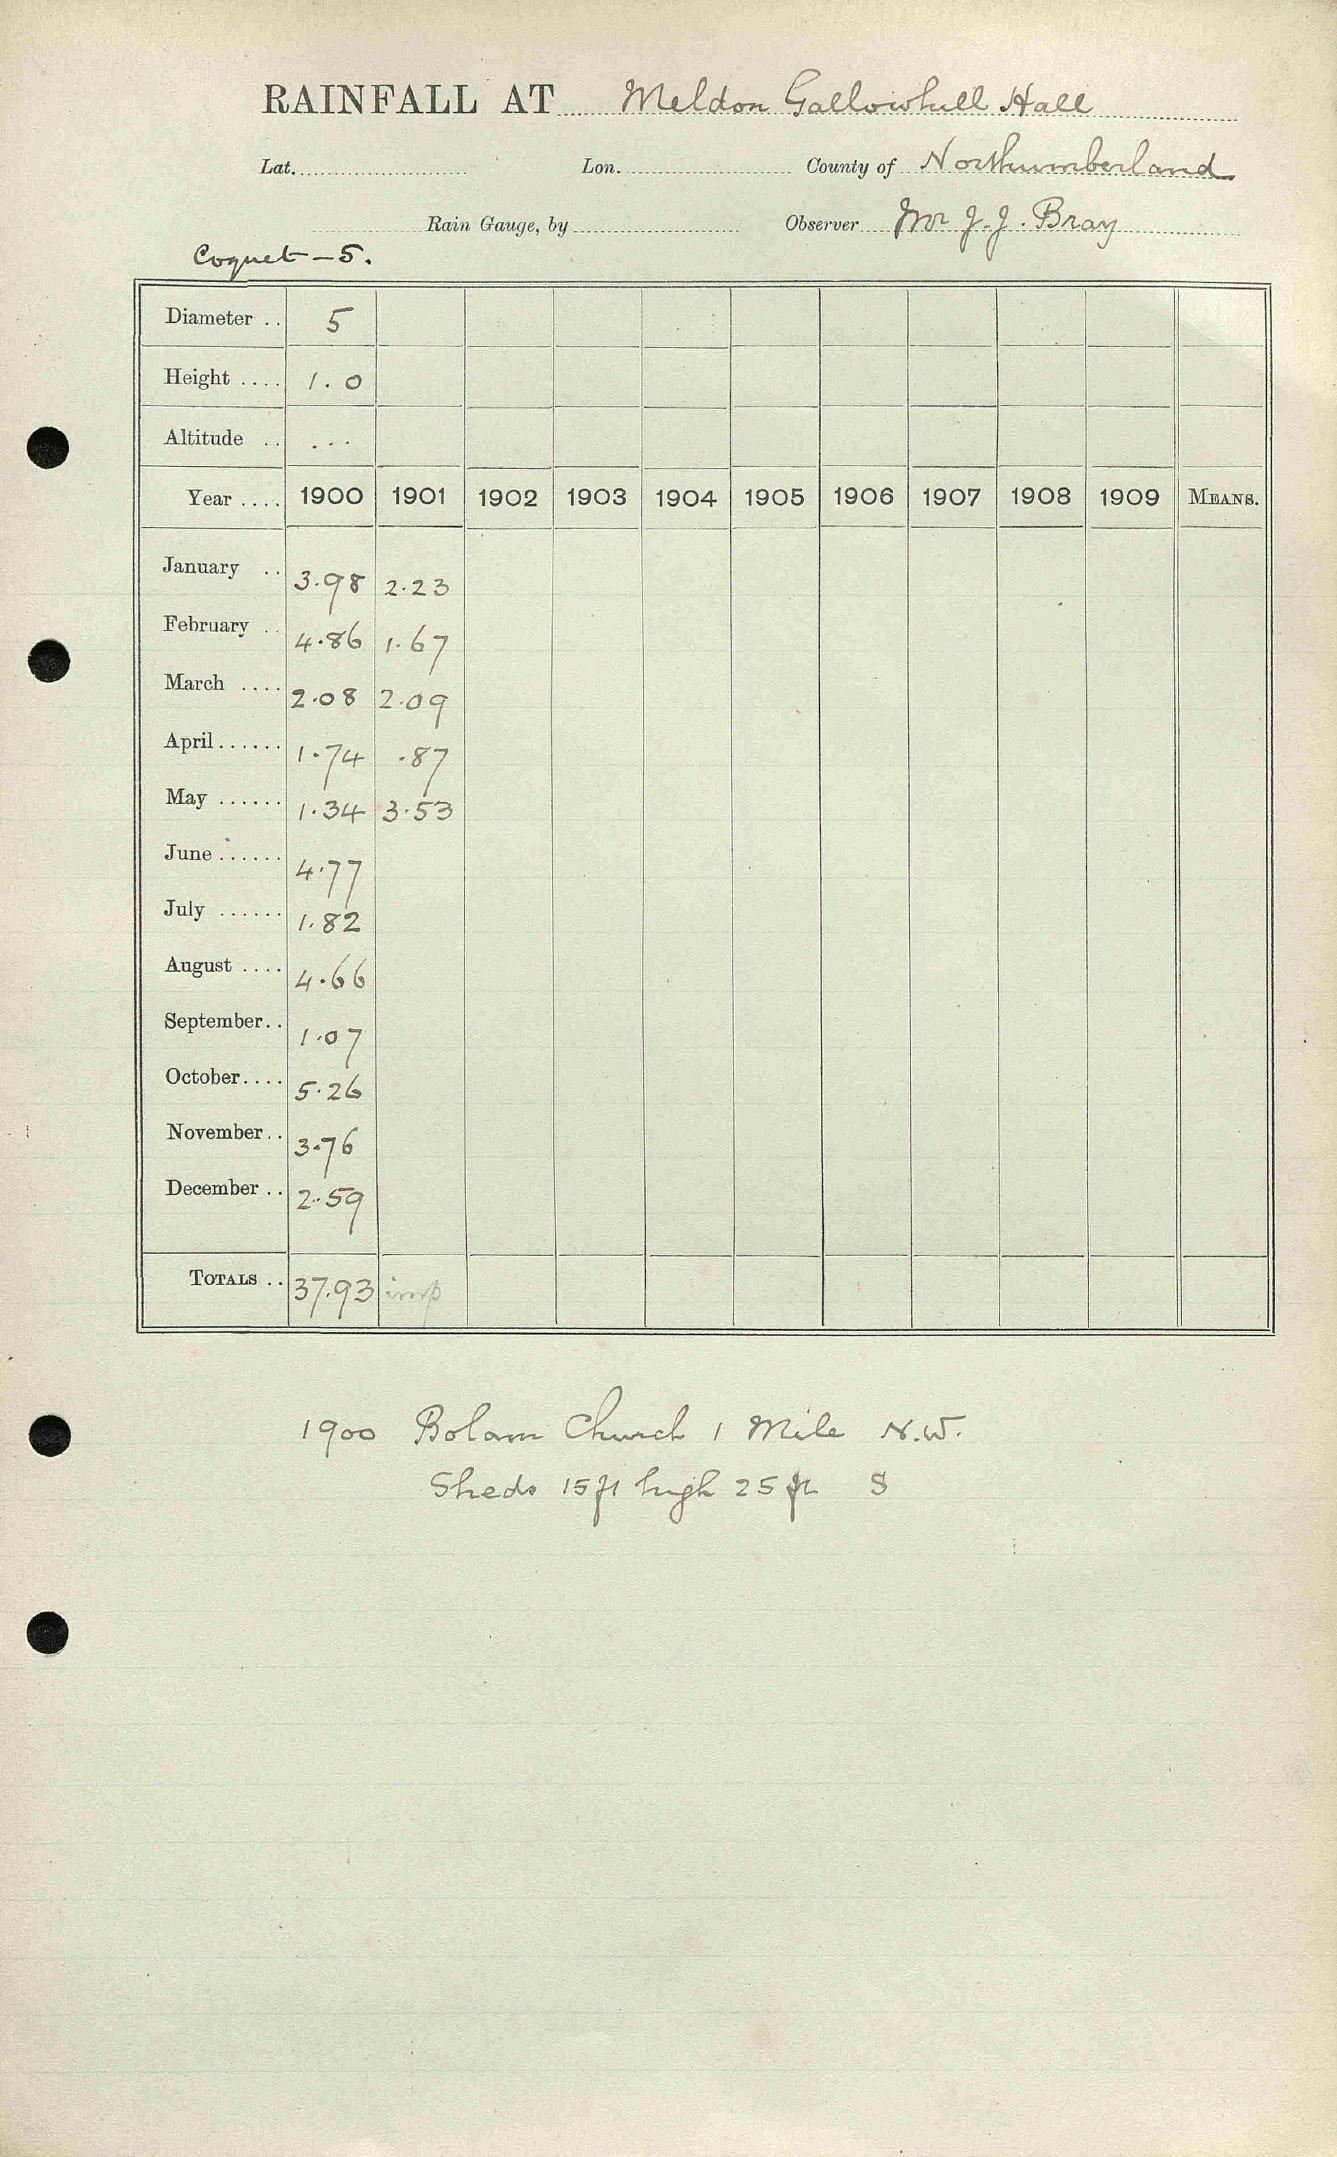 RAINFALL AT Meldon Gallowhill Hall
Lat. Lon. County of Northumberland
Rain Gauge, by Observer Mr J. J. Bray
Coquet – 5.
Diameter .. 5
Height .... 1.0
Altitude .. ...
Year .... 1900 1901 1902 1903 1904 1905 1906 1907 1908 1909 MEANS.
January .. 3.98 2.23
February .. 4.86 1.67
March .... 2.08 2.09
April...... 1.74 .87
May ...... 1.34 3.53
June ...... 4.77
July ...... 1.82
August .... 4.66
September.. 1.07
October.... 5.26
November.. 3.76
December .. 2.59
TOTALS .. 37.93 imp
1900 Bolam Church 1 Mile N.W.
Sheds 15 ft high 25 ft S